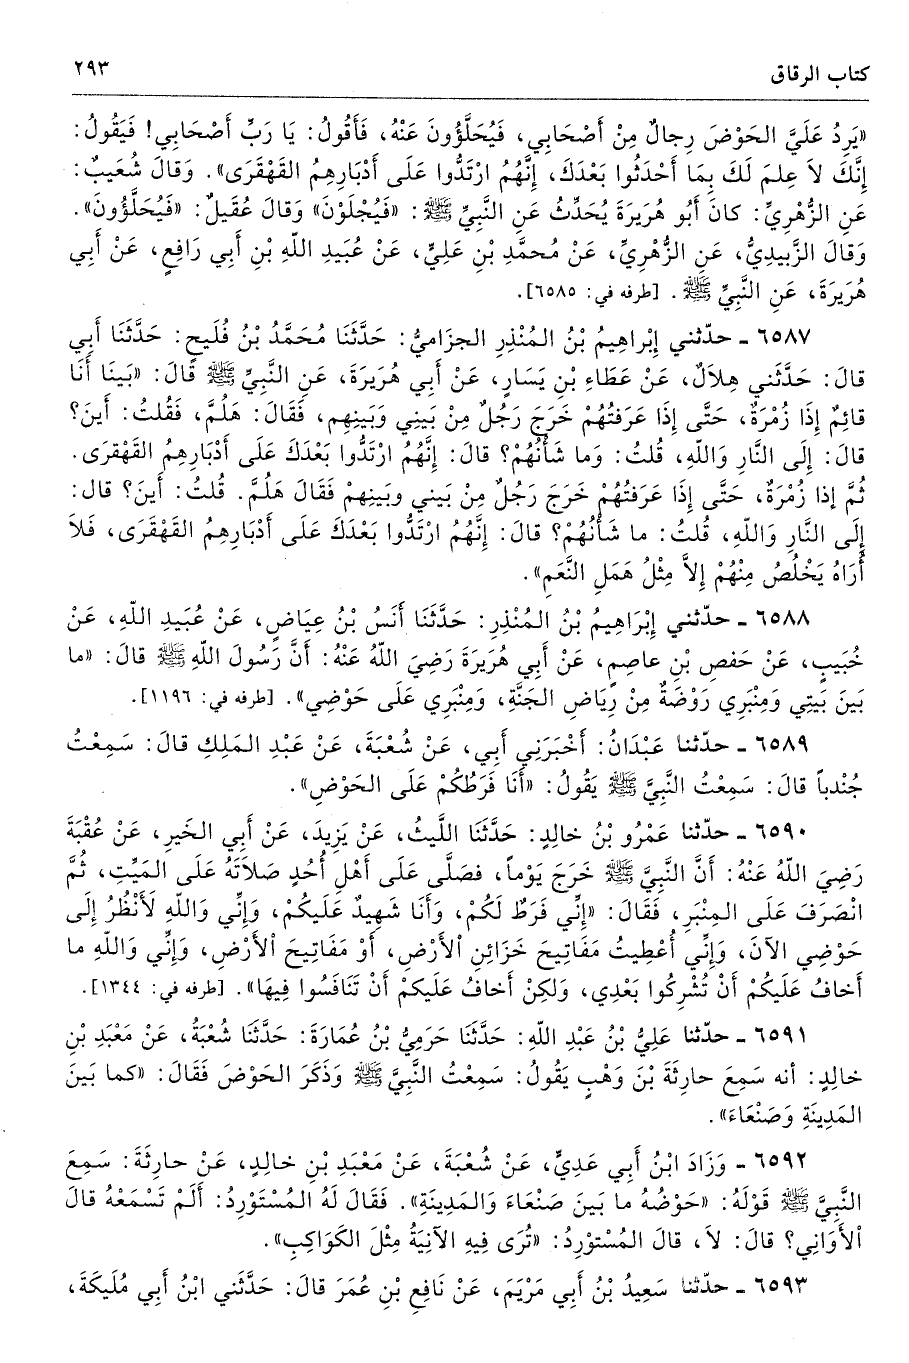 كتاب الرقاق ٢٩٣
«يَرِدُ عَلَيَّ الحَوْضَ رِجالٌ مِنْ أَصْحَابِي، فَيُحَلَّؤُونَ عَنْهُ، فَأَقُولُ: يَا رَبِّ أَصْحَابِي! فَيَقُولُ:
إِنَّكَ لاَ عِلمَ لَكَ بِمَا أَحْدَثُوا بَعْدَكَ، إِنَّهُمُ ارْتَدُّوا عَلَى أَدْبَارِهِمُ القَهْقَرَى». وَقالَ شُعَيبٌ:
عَنِ الزُّهْرِيِّ: كانَ أَبُو هُرَيرَةَ يُحَدِّثُ عَنِ النَّبِيِّ ﷺ: «فَيُجْلَوْنَ» وَقالَ عُقَيلٌ: «فَيُحَلَّؤُونَ».
وَقالَ الزَّبِيدِيُّ، عَنِ الزُّهْرِيِّ، عَنْ مُحمَّدِ بْنِ عَلِيٍّ، عَنْ عُبَيدِ اللّهِ بْنِ أَبِي رَافِعٍ، عَنْ أَبِي
هُرَيرَةَ، عَنِ النَّبِيِّ ﷺ. [طرفه في: ٦٥٨٥].
٦٥٨٧ ـ حدّثني إِبْراهِيمُ بْنُ المُنْذِرِ الحِزَامِيُّ: حَدَّثَنَا مُحَمَّدُ بْنُ فُلَيحٍ: حَدَّثَنَا أَبِي
قالَ: حَدَّثَنِي هِلاَلٌ، عَنْ عَطَاءِ بْنِ يَسَارٍ، عَنْ أَبِي هُرَيرَةَ، عَنِ النَّبِيِّ ﷺ قَالَ: «بَينَا أَنَا
قائِمٌ إِذَا زُمْرَةٌ، حَتَّى إِذَا عَرَفتُهُمْ خَرَجَ رَجُلٌ مِنْ بَينِي وَبَينِهِم، فَقَالَ: هَلُمَّ، فَقُلتُ: أَينَ؟
قالَ: إِلَى النَّارِ وَاللّهِ، قُلتُ: وَما شَأْنُهُمْ؟ قالَ: إِنَّهُمُ ارْتَدُّوا بَعْدَكَ عَلَى أَدْبَارِهِمُ القَهْقرَى.
ثُمَّ إِذا زُمْرَةٌ، حَتَّى إِذَا عَرَفتُهُمْ خَرَجَ رَجُلٌ مِنْ بَيني وبَينِهِمْ فَقالَ هَلُمَّ. قُلتُ: أَينَ؟ قال:
إِلَى النارِ وَاللّهِ، قُلتُ: ما شَأْنُهُمْ؟ قالَ: إِنَّهُمُ ارْتَدُّوا بَعْدَكَ عَلَى أَدْبَارِهِمُ القَهْقَرَى، فَلاَ
أُرَاهُ يَخْلُصُ مِنْهُمْ إِلاَّ مِثْلُ هَمَلِ النَّعَمِ».
٦٥٨٨ ـ حدّثني إِبْرَاهِيمُ بْنُ المُنْذِرِ: حَدَّثَنَا أَنَسُ بْنُ عِيَاضٍ، عَنْ عُبَيدِ اللّهِ، عَنْ
خُبَيبٍ، عَنْ حَفصِ بْنِ عاصِمٍ، عَنْ أَبِي هُرَيرَةَ رَضِيَ اللّهُ عَنْهُ: أَنَّ رَسُولَ اللّهِ ﷺ قالَ: «ما
بَينَ بَيتِي وَمِنْبَرِي رَوْضَةٌ مِنْ رِيَاضِ الجَنَّةِ، وَمِنْبَرِي عَلَى حَوْضِي». [طرفه في: ١١٩٦].
٦٥٨٩ ـ حدّثنا عَبْدَانُ: أَخْبَرَنِي أَبِي، عَنْ شُعْبَةَ، عَنْ عَبْدِ المَلِكِ قالَ: سَمِعْتُ
جُنْدباً قالَ: سَمِعْتُ النَّبِيَّ ﷺ يَقُولُ: «أَنَا فَرَطُكُمْ عَلَى الحَوْضِ».
٦٥٩٠ ـ حدّثنا عَمْرُو بْنُ خالِدٍ: حَدَّثَنَا اللَّيثُ، عَنْ يَزِيدَ، عَنْ أَبِي الخَيرِ، عَنْ عُقْبَةَ
رَضِيَ اللّهُ عَنْهُ: أَنَّ النَّبِيَّ ﷺ خَرَجَ يَوْماً، فَصَلَّى عَلَى أَهْلِ أُحُدٍ صَلاَتَهُ عَلَى المَيِّتِ، ثُمَّ
انْصَرَفَ عَلَى المِنْبَرِ، فَقَالَ: «إِنِّي فَرَطٌ لَكُمْ، وَأَنَا شَهِيدٌ عَلَيكُمْ، وَإِنِّي وَاللّهِ لأَنْظُرُ إِلَى
حَوْضِي الآنَ، وَإِنِّي أُعْطِيتُ مَفَاتِيحَ خَزَائِنِ الأَرْضِ، أَوْ مَفَاتِيحَ الأَرْضِ، وَإِنِّي وَاللّهِ ما
أَخافُ عَلَيكُمْ أَنْ تُشْرِكُوا بَعْدِي، وَلكِنْ أَخافُ عَلَيكمْ أَنْ تَنَافَسُوا فِيهَا». [طرفه في: ١٣٤٤].
٦٥٩١ ـ حدّثنا عَلِيُّ بْنُ عَبْدِ اللّهِ: حَدَّثَنَا حَرَمِيُّ بْنُ عُمَارَةَ: حَدَّثَنَا شُعْبَةُ، عَنْ مَعْبَدِ بْنِ
خالِدٍ: أنه سَمِعَ حارِثَةَ بْنَ وَهْبٍ يَقُولُ: سَمِعْتُ النَّبِيَّ ﷺ وَذَكَرَ الحَوْضَ فَقَالَ: «كما بَينَ
المَدِينَةِ وَصَنْعَاءَ».
٦٥٩٢ ـ وَزَادَ ابْنُ أَبِي عَدِيٍّ، عَنْ شُعْبَةَ، عَنْ مَعْبَدِ بْنِ خالِدٍ، عَنْ حارِثَةَ: سَمِعَ
النَّبِيَّ ﷺ قَوْلَهُ: «حَوْضُهُ ما بَينَ صَنْعَاءَ وَالمَدِينَةِ». فَقَالَ لَهُ المُسْتَوْرِدُ: أَلَمْ تَسْمَعْهُ قالَ
الأَوَانِي؟ قالَ: لاَ، قالَ المُسْتَوْرِدُ: «تُرَى فِيهِ الآنِيَةُ مِثْلَ الكَوَاكِبِ».
٦٥٩٣ ـ حدّثنا سَعِيدُ بْنُ أَبِي مَرْيَمَ، عَنْ نَافِعِ بْنِ عُمَرَ قالَ: حَدَّثَنِي ابْنُ أَبِي مُلَيكَةَ،